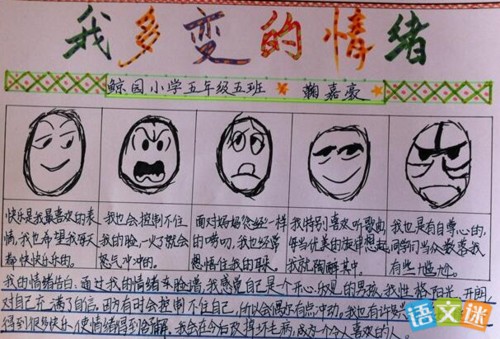 我多变的情绪
鲸园小学五年级五班 鞠嘉豪
快乐是我最喜欢的表
情,我也希望我每天
都快快乐乐的。
我也会控制不住
我的脸,火了就会
怒气冲冲的。
面对妈妈念经一样
的唠叨,我也经常
想捂住我的耳朵。
我特别喜欢听歌曲,
每当优美的旋律想起
我就陶醉其中。
我也是有自尊心的,
同学们当众
有些尴尬。
我的情绪告白:通过我的情绪车脸谱,我感觉自己是个开心、乐观的男孩,我性格阳光、开朗
对自己充满了自信。因为有时会控制不住自己,所以会偶尔有点冲动,我也有许多
得到很多快乐,使情绪得到会
我会在今后改掉坏毛病,成为个令人喜欢的人。
语文迷